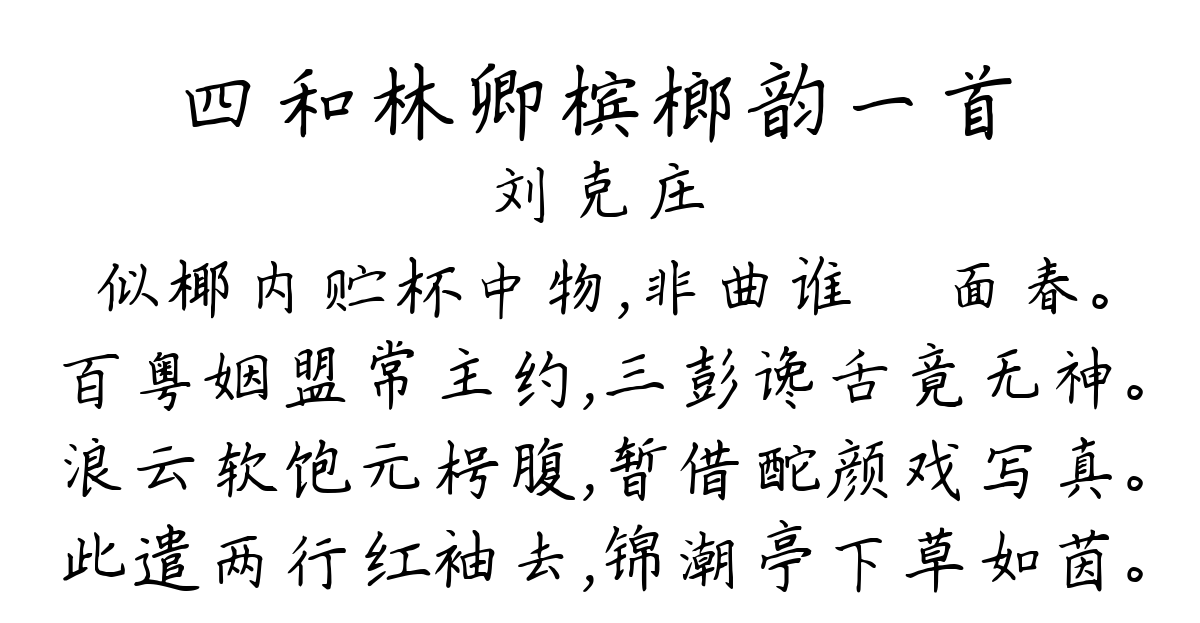 四和林卿槟榔韵一首
刘克庄
似椰内贮杯中物,非曲谁 面春。
百粤姻盟常主约,三彭谗舌竟无神。
浪云软饱元枵腹,暂借酡颜戏写真。
此遣两行红袖去,锦潮亭下草如茵。